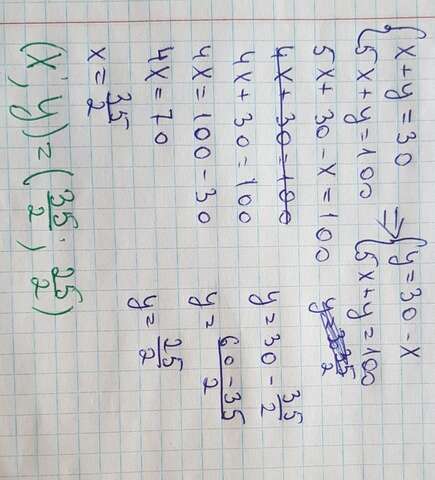 {x+y=30
{5x+y=100
=> {y=30-x
{5x+y=100
5x+30-x=100
4x+30=100
4x+30=100
4x=100-30
4x=70
x=35/2
y=30-35/2
y=(60-35)/2
y=25/2
(x;y)=(35/2;25/2)